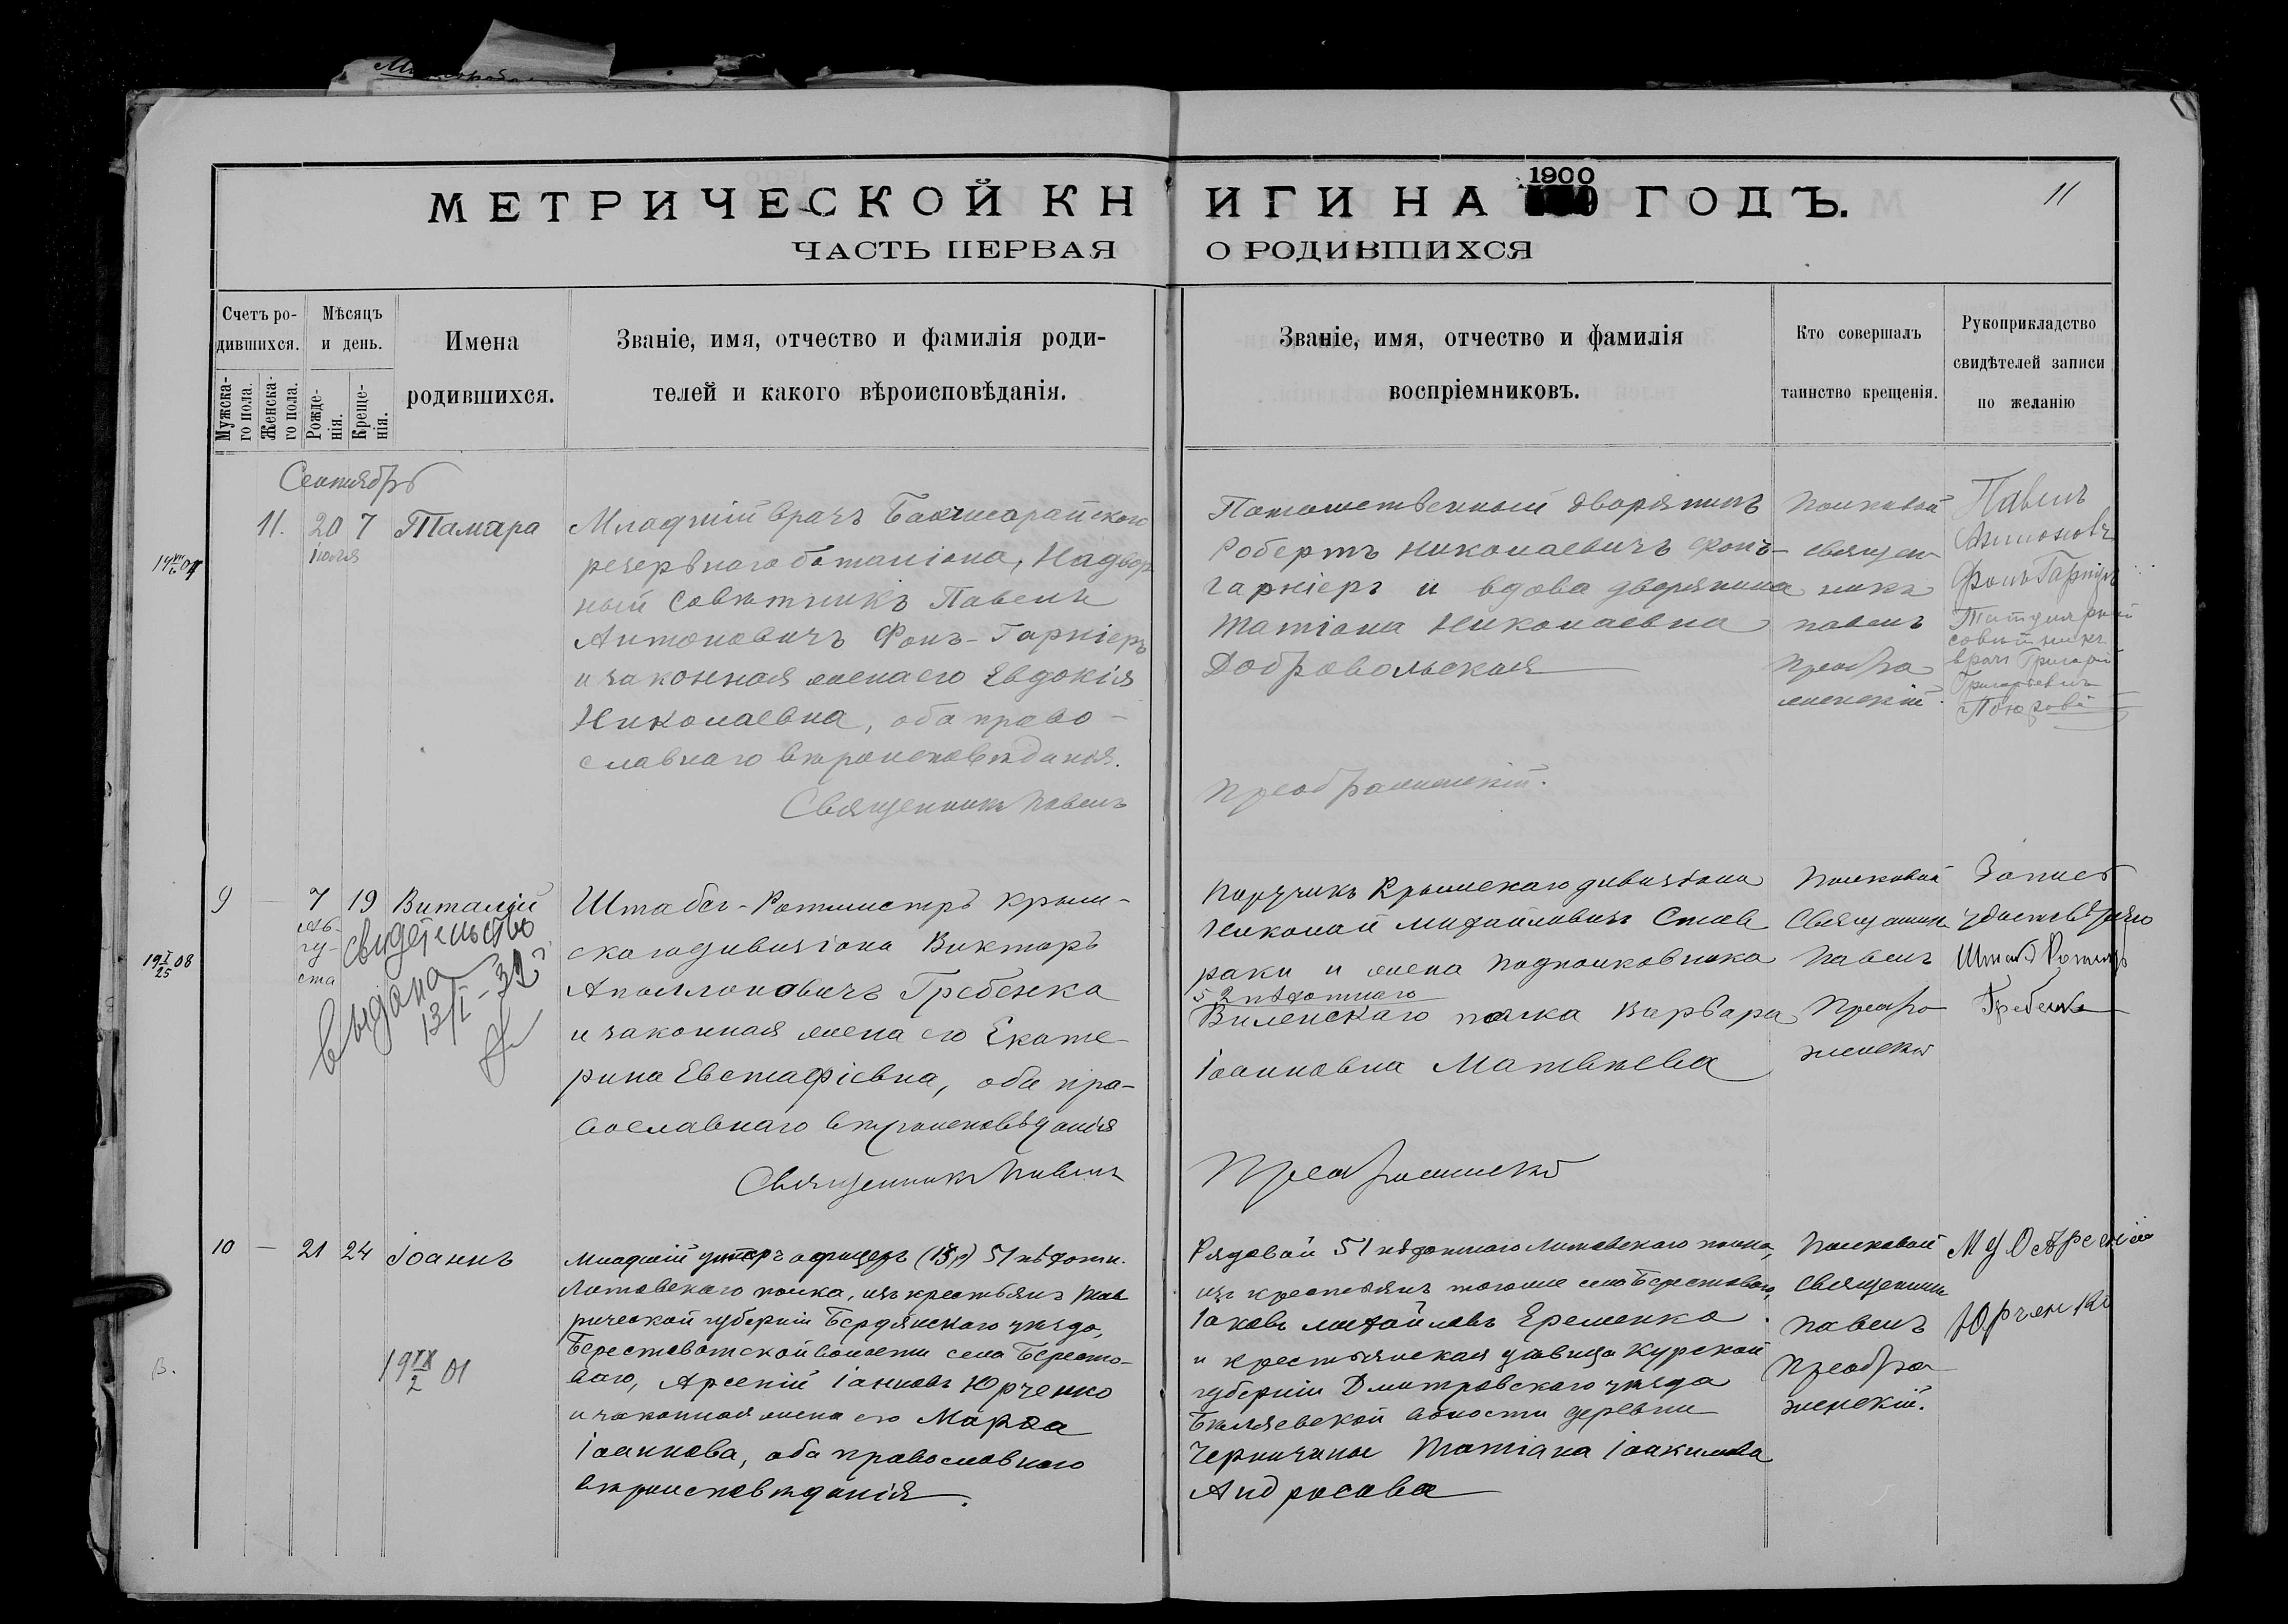 МЕТРИЧЕСКОЙ КНИГИ НА 1900 ГОДЪ.
11
ЧАСТЬ ПЕРВАЯ О РОДИВШИХСЯ
Счетъ ро-
дившихся.
Мужска-
го пола.
Женска-
го пола.
Мѣсяцъ
и день.
Рожде-
нія.
Креще-
нія.
Имена
родившихся.
Званіе, имя, отчество и фамилія роди-
телей и какого вѣроисповѣданія.
Званіе, имя, отчество и фамилія
воспріемниковъ.
Кто совершалъ
таинство крещенія.
Рукоприкладство
свидѣтелей записи
по желанію
Сентябрь
11. 20 7 Тамара
іюля
Младшій врачъ Бахчисарайскаго
резервнаго баталіона, Надвор
ный Совѣтникъ Павелъ
Антоновичъ Фонъ-Гарніеръ
и законная жена его Евдокія
Николаевна, оба право-
славнаго вѣроисповѣданія.
Священникъ Павелъ
Потомственный дворянинъ
Робертъ Николаевичъ фонъ-
Гарніеръ и вдова дворянина
Татіана Николаевна
Добровольская
Преображенскій.
Полковой
священ
никъ
Павелъ
Преобра
женскій.
Павелъ
Антоновъ
Фонъ Гарніеръ
Титулярный
совѣтникъ
врачъ Григорій
Григорьевичъ
9 — 7 19 Виталій
Ав-
гу-
ста
свидетельство
выдана
13/I-32
19 I/25 08
Штабсъ-Ротмистръ Крым-
скаго дивизіона Викторъ
Аполлоновичъ Гребенка
и законная жена его Екате-
рина Евстафіевна, оба пра-
вославнаго вѣроисповѣданія
Священникъ Павелъ
Поручикъ Крымскаго дивизіона
Николай Михайловичъ Став
раки и жена Подполковника
52 пѣхотнаго
Виленскаго полка Варвара
Іоанновна Матвѣева
Преображенскій
Полковой
Священникъ
Павелъ
Преобра
женскій
Запись
удостовѣряю
Штабъ Ротмистръ
Гребенка
10 — 21 24 Іоаннъ
19 IX/2 01
В.
Младшій унтеръ офицеръ 51 пѣхотн.
Литовскаго полка, изъ крестьянъ Тав
рической губерніи Бердянскаго уѣзда,
Берестоватской волости села Бересто-
ваго, Арсеній Іанновъ Юрченко
и законная жена его Марѳа
Іоаннова, оба православнаго
вѣроисповѣданія.
Рядовой 51 пѣхотнаго Литовскаго полка,
изъ крестьянъ тогоже села Берестоваго,
Іаковъ Михайловъ Еременко
и крестьянская дѣвица Курской
губерніи Дмитровскаго уѣзда
Бѣляевской волости деревни
Татіана Іоакимова
Андросова
Полковой
Священникъ
Павелъ
Преобра
женскій.
М У О Арсеній
Юрченко